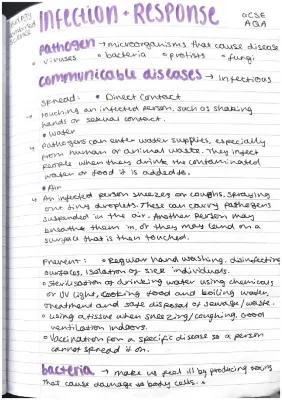 INFECTION + RESPONSE
GCSE
AQA
combined
science
pathogen → microorganisms that cause disease
• viruses • bacteria • protists • fungi
communicable diseases → infectious
Spread: • Direct contact
↳ touching an infected person, such as shaking
hands or sexual contact.
• Water
↳ Pathogens can enter water supplies, especially
from human or animal waste. They infect
people when they drink the contaminated
water or food it is added to.
• Air
↳ An infected person sneezes or coughs, spraying
out tiny droplets. These can carry pathogens
suspended in the air. Another person may
breathe them in, or they may land on a
surface that is then touched.
Prevent: • Regular hand washing, disinfecting
surfaces, isolation of sick individuals.
• Sterilisation of drinking water using chemicals
or UV light, cooking food and boiling water,
treatment and safe disposal of sewage/waste.
• using a tissue when sneezing/coughing, Good
ventilation indoors.
• Vaccination for a specific disease so a person
cannot spread it on.
bacteria → make us feel ill by producing toxins
that cause damage to body cells.